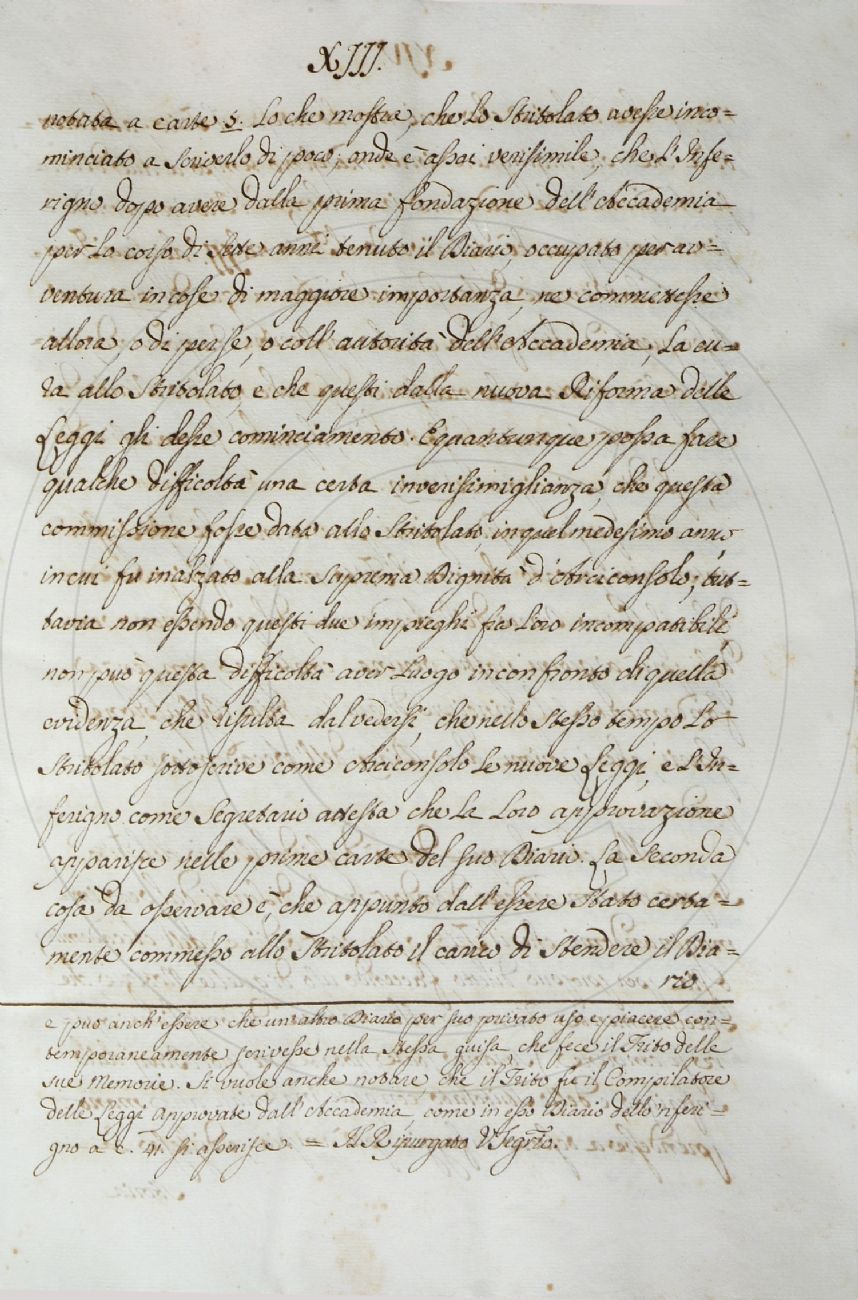 XIII.
notata a carte 5. Lo che mostra, che lo Stritolato avesse inco=
minciato a scriverlo di poco; onde è assai verisimile, che l'Infe=
rigno dopo avere dalla prima fondazione dell'Accademia
per lo corso di sette anni tenuto il Diario, occupato per av=
ventura in cose di maggiore importanza, ne commettesse
allora, o di per se, o coll'autorità dell'Accademia, la cu=
ra allo Stritolato, e che questi dalla nuova Riforma delle
Leggi gli desse cominciamento. E quantunque possa fare
qualche difficoltà una certa inverisimiglianza che questa
commissione fosse data allo Stritolato, in quel medesimo anno
in cui fu inalzato alla suprema Dignità d'Arciconsolo; tut=
tavia non essendo questi due impieghi fra loro incompatibili,
non può questa difficoltà aver luogo in confronto di quella
evidenza, che risulta dal vedersi, che nello stesso tempo lo
Stritolato sottoscrive come Arciconsolo le nuove Leggi, e l'In=
ferigno come Segretario attesta che la loro approvazione
apparisce nelle prime carte del suo Diario. La seconda
cosa da osservare è, che appunto dall'essere stato certa=
mente commesso allo Stritolato il carico di stendere il Dia=
rio
e può anch'essere che un'altro Diario per suo privato uso e piacere con=
temporaneamente scrivesse nella stessa guisa, che fece il Trito delle
sue Memorie. Si vuole anche notare che il Trito fu il Compilatore
delle Leggi approvate dall'Accademia come in esso Diario dello 'nferi=
gno a c. 41. si asserisce. = Il Ripurgato V. Segrio.